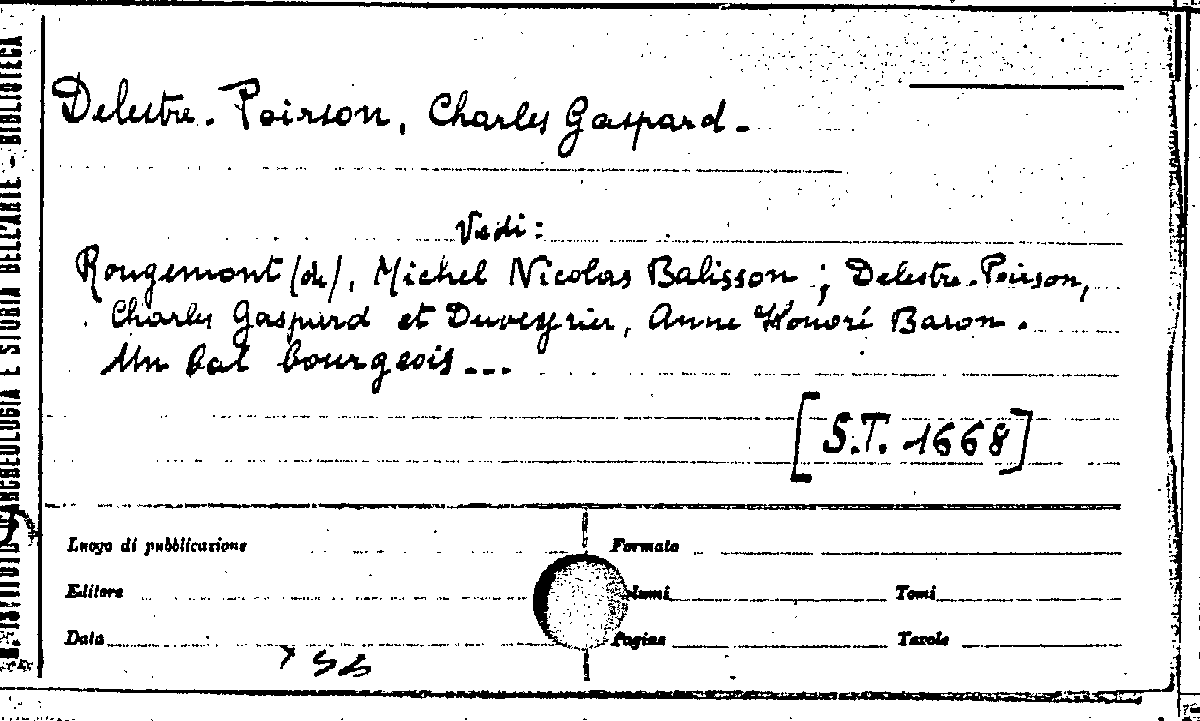 Delestre-Poirson, Charles Gaspard.
Vedi:
Rougemont (de), Michel Nicolas Balisson ; Delestre-Poirson,
Charles Gaspard et Duveyrier, Anne Honoré Baron.
Un bal bourgeois...
[S.T. 1668]
Luogo di pubblicazione
Formato
Editore
Tomi
Data
Pagine
Tavole
ISTITUTO D'ARCHEOLOGIA E STORIA DELL'ARTE - BIBLIOTECA